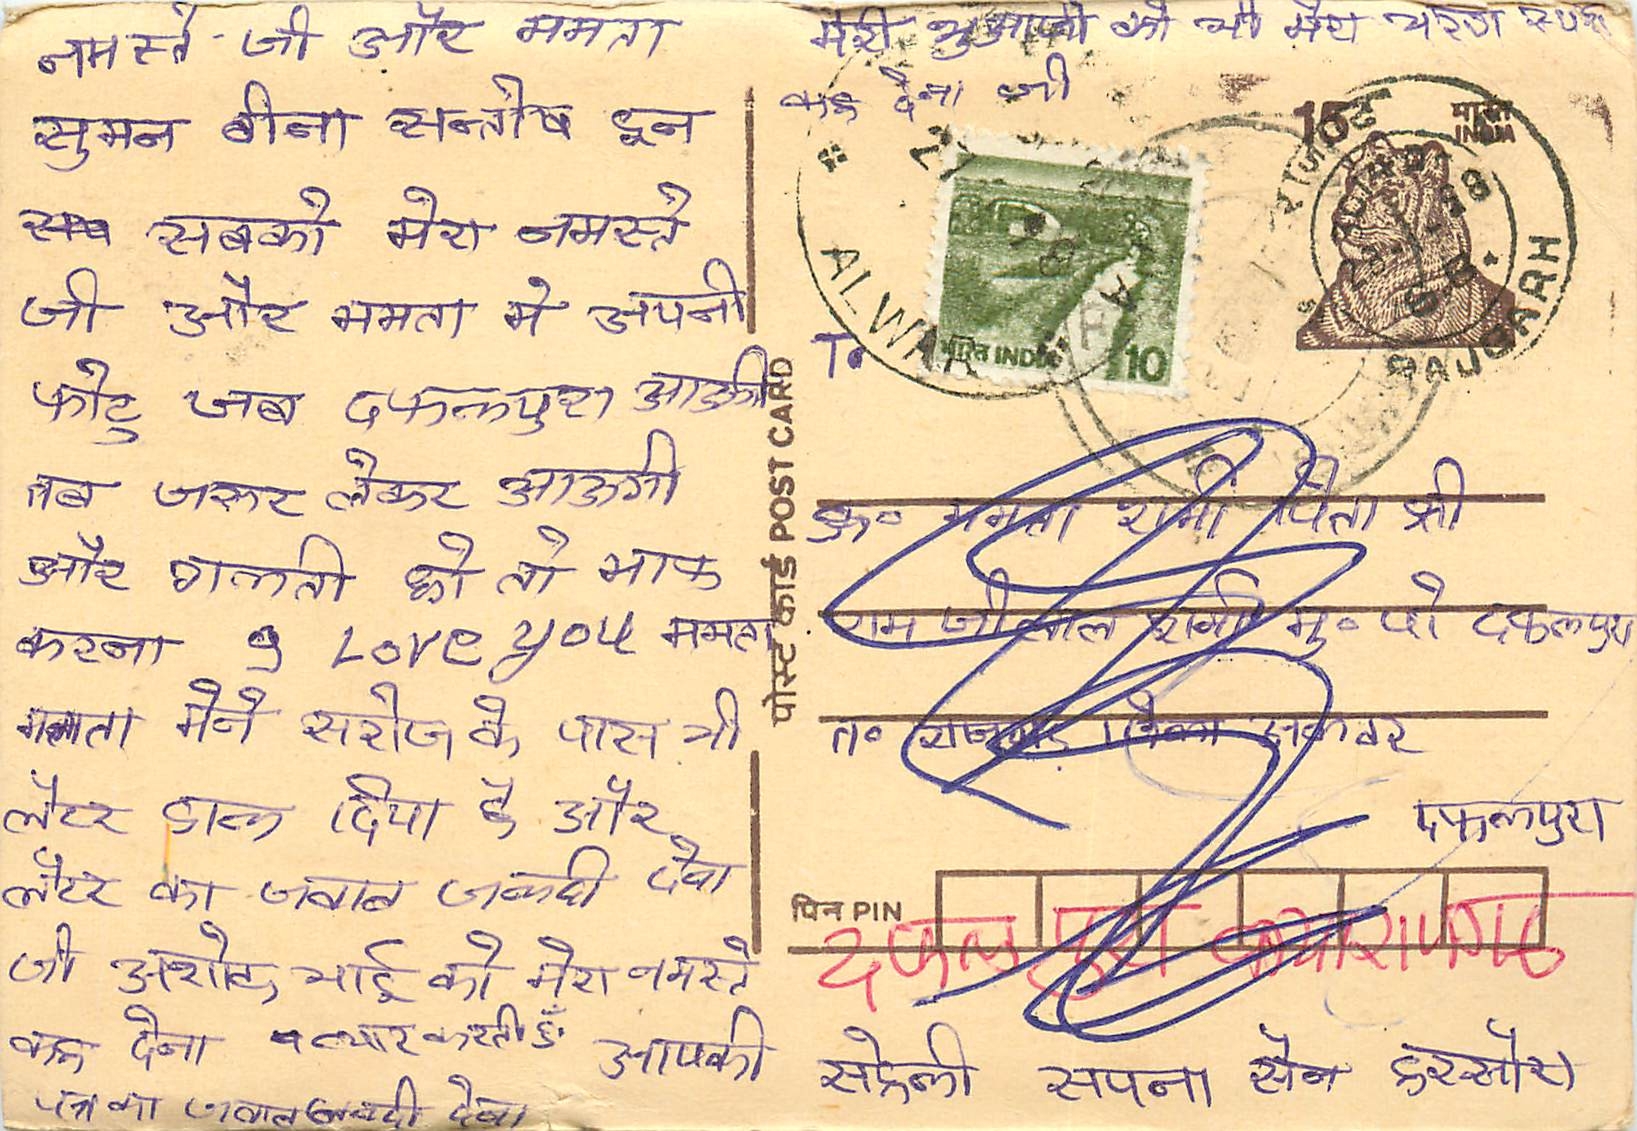 नमस्ते जी और ममता
सुमन बीना सन्तोष इन
सब सबको मेरा नमस्ते
जी और ममता मे अपनी
फोटु जब दफलपुरा आऊगी
तब जरूर लेकर आऊगी
और गलती हो तो माफ
करना I Love you ममता
ममता मेने सरोज के पास भी
लेटर डाल दिया है और
लेटर का जवाब जल्दी देवा
जी अशोक भाई को मेरा नमस्ते
कह देना प्यार करती हूँ आपकी
पत्र का जवाब जल्दी देवा
मेरी भुआजी को भी मेरा चरण स्पर्श
कह देना जी
15
भारत
INDIA
ALWAR
भारत INDIA 10
राजगढ
RAJGARH
पोस्ट कार्ड POST CARD
To
कु० ममता शर्मा पिता श्री
राम जीलाल शर्मा मु० पो दफलपुरा
त० राजगढ जिला अलवर
दफलपुरा
पिन PIN
दफलपुरा
सहेली सपना सैन हरसोरा